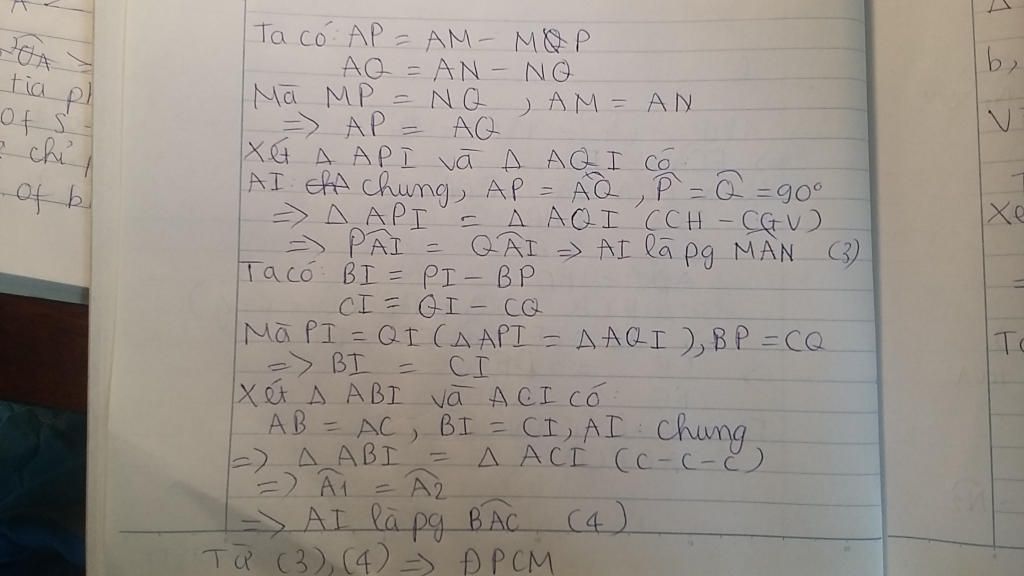 OA >
tia p
Of s
chỉ
Of b
Ta có AP = AM - MP
AQ = AN - NQ
Mà MP = NQ , AM = AN
=> AP = AQ
Xét Δ API và Δ AQI có
AI: chung, AP = AQ , P̂ = Q̂ = 90°
=> Δ API = Δ AQI (CH - CGV)
=> PÂI = QÂI => AI là pg MÂN (3)
Ta có: BI = PI - BP
CI = QI - CQ
Mà PI = QI (Δ API = Δ AQI), BP = CQ
=> BI = CI
Xét Δ ABI và ACI có:
AB = AC, BI = CI, AI: chung
=> Δ ABI = Δ ACI (C-C-C)
=> Â1 = Â2
=> AI là pg BÂC (4)
Từ (3), (4) => ĐPCM
b,
V
Xé
=
Ta